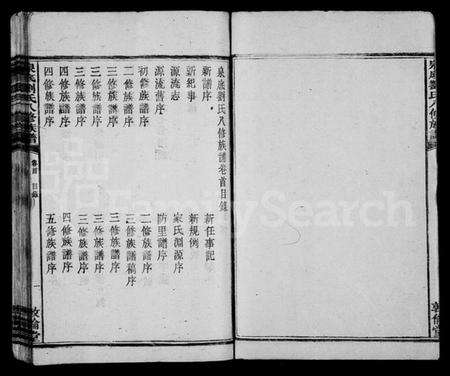 泉底劉氏八修族譜
敦倫堂
泉底劉氏八修族譜卷首目錄
新譜序
新任事記
新紀事
新規例
源流志
家氏淵源序
源流舊序
防里譜序
初修族譜序
二修族譜序
二修族譜序
三修族譜稿序
三修族譜序
三修族譜序
三修族譜序
三修族譜序
三修族譜序
三修族譜序
四修族譜序
四修族譜序
四修族譜序
五修族譜序
劉氏八修族譜
卷首 目錄
一
敦倫堂
FamilySearch